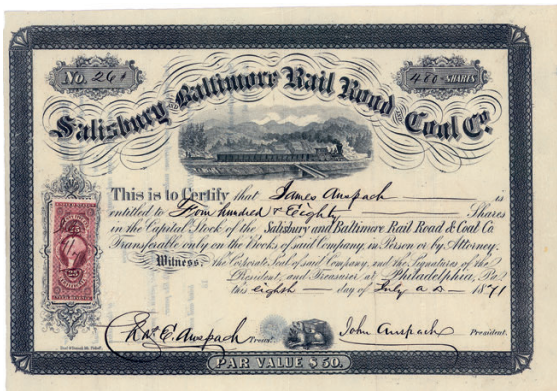 No. 264
480 SHARES
Salisbury AND Baltimore Rail Road AND Coal Co.
This is to Certify that James Anspach is
entitled to Four hundred & Eighty Shares
in the Capital Stock of the Salisbury and Baltimore Rail Road & Coal Co.
Transferable only on the Books of said Company, in Person or by Attorney.
Witness, the Corporate Seal of said Company, and the Signatures of the
President, and Treasurer at Philadelphia, Pa.
this eighth day of July A D 1871
Wm. E. Anspach Treas. John Anspach President.
25
PAR VALUE $50.